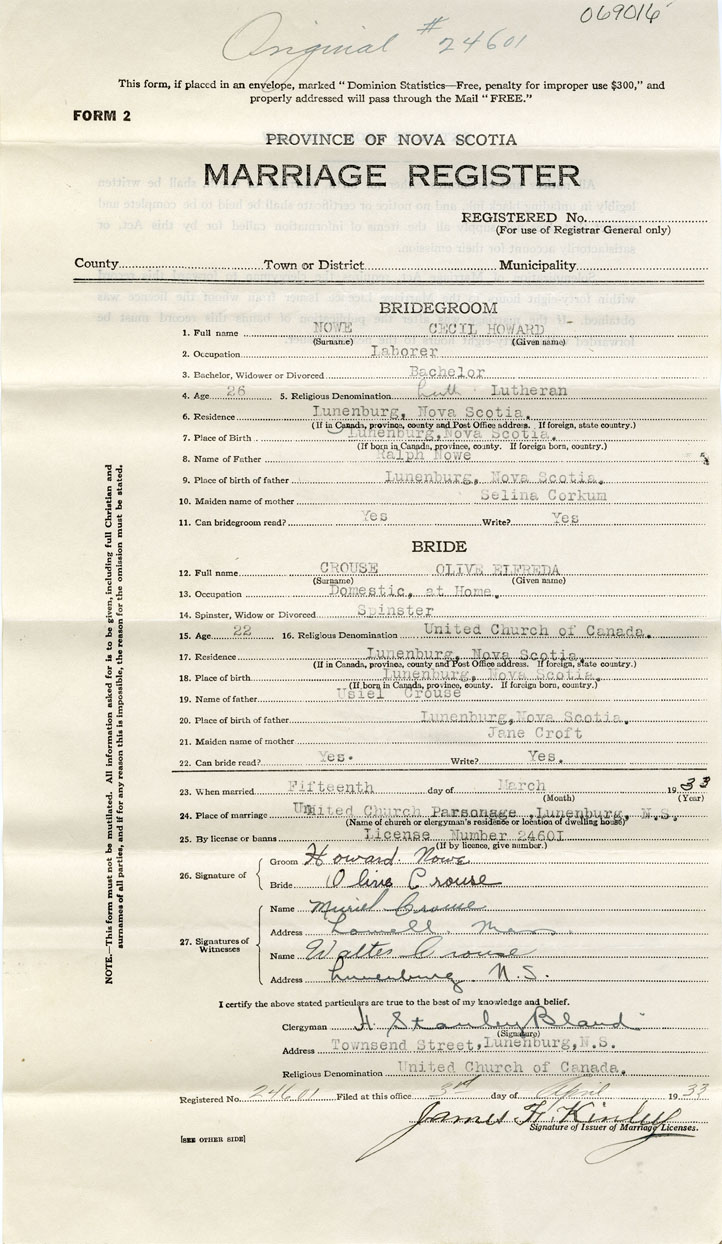 069016
Original # 24601
This form, if placed in an envelope, marked "Dominion Statistics—Free, penalty for improper use $300," and
properly addressed will pass through the Mail "FREE."
FORM 2
PROVINCE OF NOVA SCOTIA
MARRIAGE REGISTER
REGISTERED No.
(For use of Registrar General only)
County Town or District Municipality
BRIDEGROOM
1. Full name NOWE CECIL HOWARD
(Surname) (Given name)
2. Occupation Laborer
3. Bachelor, Widower or Divorced Bachelor
4. Age 26 5. Religious Denomination Luth Lutheran
6. Residence Lunenburg, Nova Scotia.
(If in Canada, province, county and Post Office address. If foreign, state country.)
7. Place of Birth Lunenburg, Nova Scotia.
(If born in Canada, province, county. If foreign born, country.)
8. Name of Father Ralph Nowe
9. Place of birth of father Lunenburg, Nova Scotia.
10. Maiden name of mother Selina Corkum
11. Can bridegroom read? Yes Write? Yes
BRIDE
12. Full name CROUSE OLIVE ELFREDA
(Surname) (Given name)
13. Occupation Domestic, at Home.
14. Spinster, Widow or Divorced Spinster
15. Age 22 16. Religious Denomination United Church of Canada.
17. Residence Lunenburg, Nova Scotia.
(If in Canada, province, county and Post Office address. If foreign, state country.)
18. Place of birth Lunenburg, Nova Scotia.
(If born in Canada, province, county. If foreign born, country.)
19. Name of father Usiel Crouse
20. Place of birth of father Lunenburg, Nova Scotia.
21. Maiden name of mother Jane Croft
22. Can bride read? Yes. Write? Yes.
23. When married Fifteenth day of March 1933
(Month) (Year)
24. Place of marriage United Church Parsonage, Lunenburg, N.S.
(Name of church or clergyman's residence or location of dwelling house)
25. By license or banns License Number 24601
(If by licence, give number.)
26. Signature of
Groom Howard Nowe
Bride Olive Crouse
27. Signatures of Witnesses
Name Muriel Crouse
Address Lowell. Mass.
Name Walter Crouse
Address Lunenburg, N.S.
I certify the above stated particulars are true to the best of my knowledge and belief.
Clergyman H. Stanley Bland
(Signature)
Address Townsend Street, Lunenburg, N.S.
Religious Denomination United Church of Canada.
Registered No. 24601 Filed at this office 3rd day of April 1933
James H. Kinley
Signature of Issuer of Marriage Licenses.
[SEE OTHER SIDE]
NOTE.—This form must not be mutilated. All information asked for is to be given, including full Christian and
surnames of all parties, and if for any reason this is impossible, the reason for the omission must be stated.